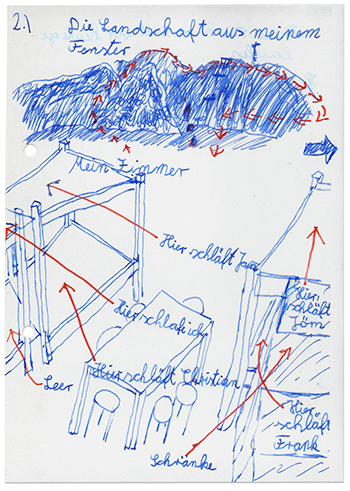 2.)
Die Landschaft aus meinem
Fenster
Mein Zimmer
Hier schläft Jan
Hier schlaf ich
Hier schläft Christian
Leer
Schränke
Hier
schläft
Jörn
Hier
schläft
Frank